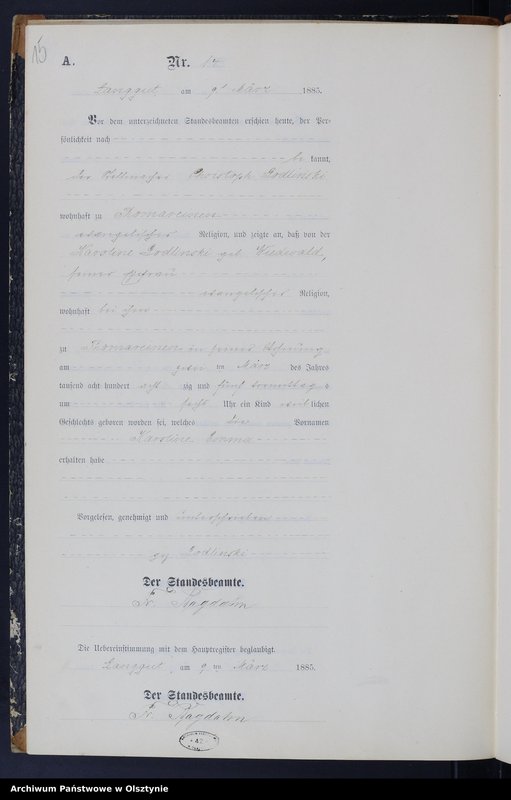 15
A. Nr. 15
Langgut, am 9 März 1885.
Vor dem unterzeichneten Standesbeamten erschien heute, der Per-
sönlichkeit nach
be kannt,
der Christoph Godlinski
wohnhaft zu Thomareinen
evangelischer Religion, und zeigte an, daß von der
Karoline Godlinski geb. Wiedwald,
seiner Ehefrau
evangelischer Religion,
wohnhaft bei ihm
zu Thomareinen in seiner Wohnung
am ten März des Jahres
tausend acht hundert acht zig und fünf
um sechs Uhr ein Kind weib lichen
Geschlechts geboren worden sei, welches die Vornamen
Karoline Emma
erhalten habe
Vorgelesen, genehmigt und unterschrieben
gez Godlinski
Der Standesbeamte.
Die Uebereinstimmung mit dem Hauptregister beglaubigt.
Langgut, am 9 ten März 1885.
Der Standesbeamte.
Archiwum Państwowe w Olsztynie